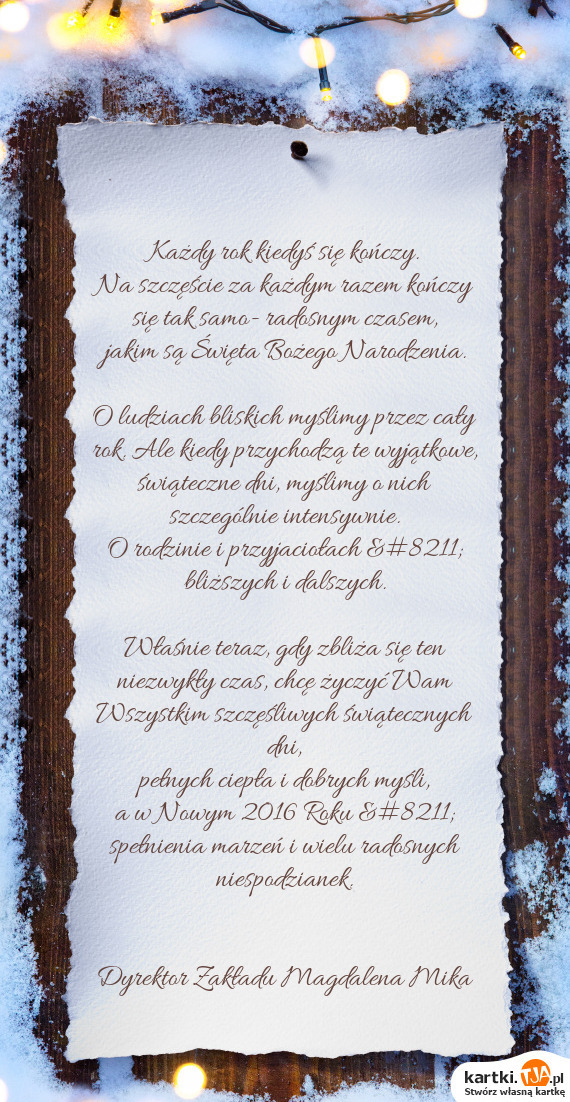 Każdy rok kiedyś się kończy.
Na szczęście za każdym razem kończy
się tak samo- radosnym czasem,
jakim są Święta Bożego Narodzenia.
O ludziach bliskich myślimy przez cały
rok. Ale kiedy przychodzą te wyjątkowe,
świąteczne dni, myślimy o nich
szczególnie intensywnie.
O rodzinie i przyjaciołach &#8211;
bliższych i dalszych.
Właśnie teraz, gdy zbliża się ten
niezwykły czas, chcę życzyć Wam
Wszystkim szczęśliwych świątecznych
dni,
pełnych ciepła i dobrych myśli,
a w Nowym 2016 Roku &#8211;
spełnienia marzeń i wielu radosnych
niespodzianek.
Dyrektor Zakładu Magdalena Mika
kartki.TJA.pl
Stwórz własną kartkę